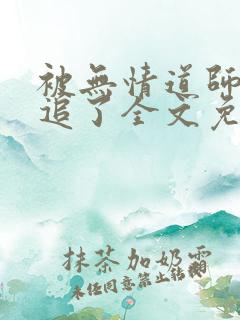 被無情道師
追了全文免
抹茶加奶霜
未任同意禁止転載